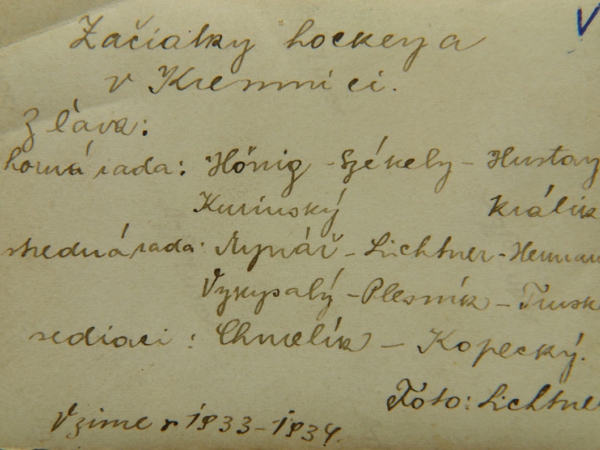 Začiatky hockeya
v Kremnici.
Zľava:
horná rada: Hönig - Székely - Hustay
Kurinský Králik
stredná rada: Mynář - Lichtner - Herman
Vykypalý - Plesník - Trusk
sediaci: Chmelík - Kopecký.
Foto: Lichtne
V zime r. 1933-1934.